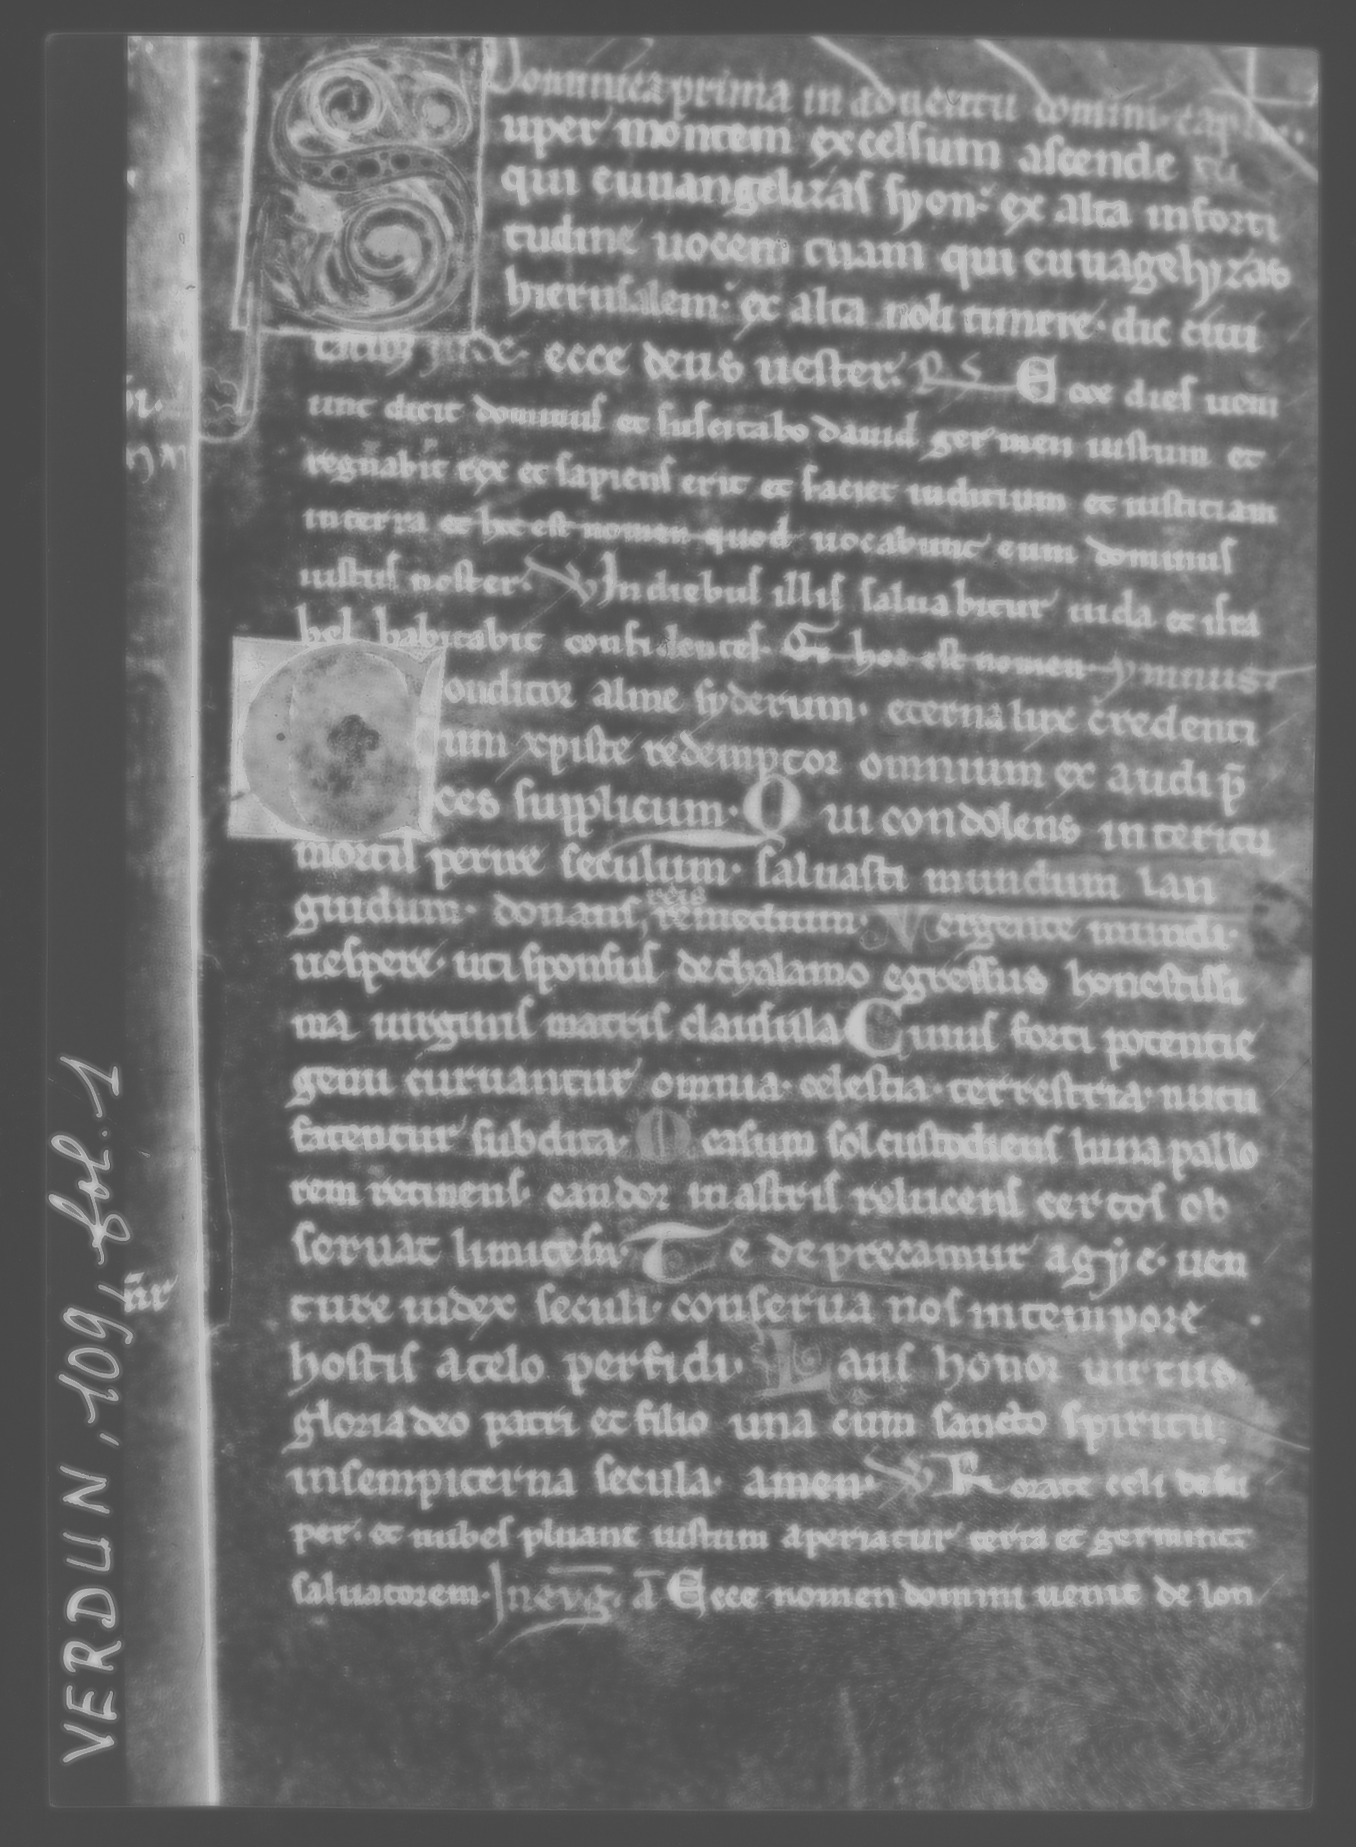 Dominica prima in adventu domini. capl
Super montem excelsum ascende tu
qui euuangelizas syon. ex alta in forti
tudine uocem tuam qui euuagelyzas
hierusalem. ex alta noli timere. dic ciui
tatib; iudę. ecce deus uester. R S Ecce dies ueni
unt dicit dominus et suscitabo dauid germen iustum et
regnabit rex et sapiens erit et faciet iudicium et iusticiam
in terra et hoc est nomen quod uocabunt eum dominus
iustus noster. V In diebus illis saluabitur iuda et isra
hel habitabit confidenter. Et hoc est nomen ymnus.
Conditor alme syderum. eterna lux credenti
um xpiste redemptor omnium ex audi p̄
ces supplicum. Qui condolens interitu
mortis perire seculum. saluasti mundum lan
guidum. donans reis remedium. Vergente mundi.
uespere. uti sponsus de thalamo egressus honestissi
ma uirginis matris clausula Cuius forti potentie
genu curuantur omnia. celestia. terrestria. nutu
fatentur subdita. Occasum sol custodiens luna pallo
rem retinens. candor in astris relucens certos ob
seruat limitesn. Te deprecamur agye. uen
ture iudex seculi. conserua nos in tempore
hostis a telo perfidi. Laus honor uirtus
gloria deo patri et filio una cum sancto spiritu.
in sempiterna secula. amen. V Rorate celi desu
per. et nubes pluant iustum aperiatur terra et germinet
saluatorem. In eug. a Ecce nomen domini uenit de lon
n̄r
VERDUN, 109, fol. 1